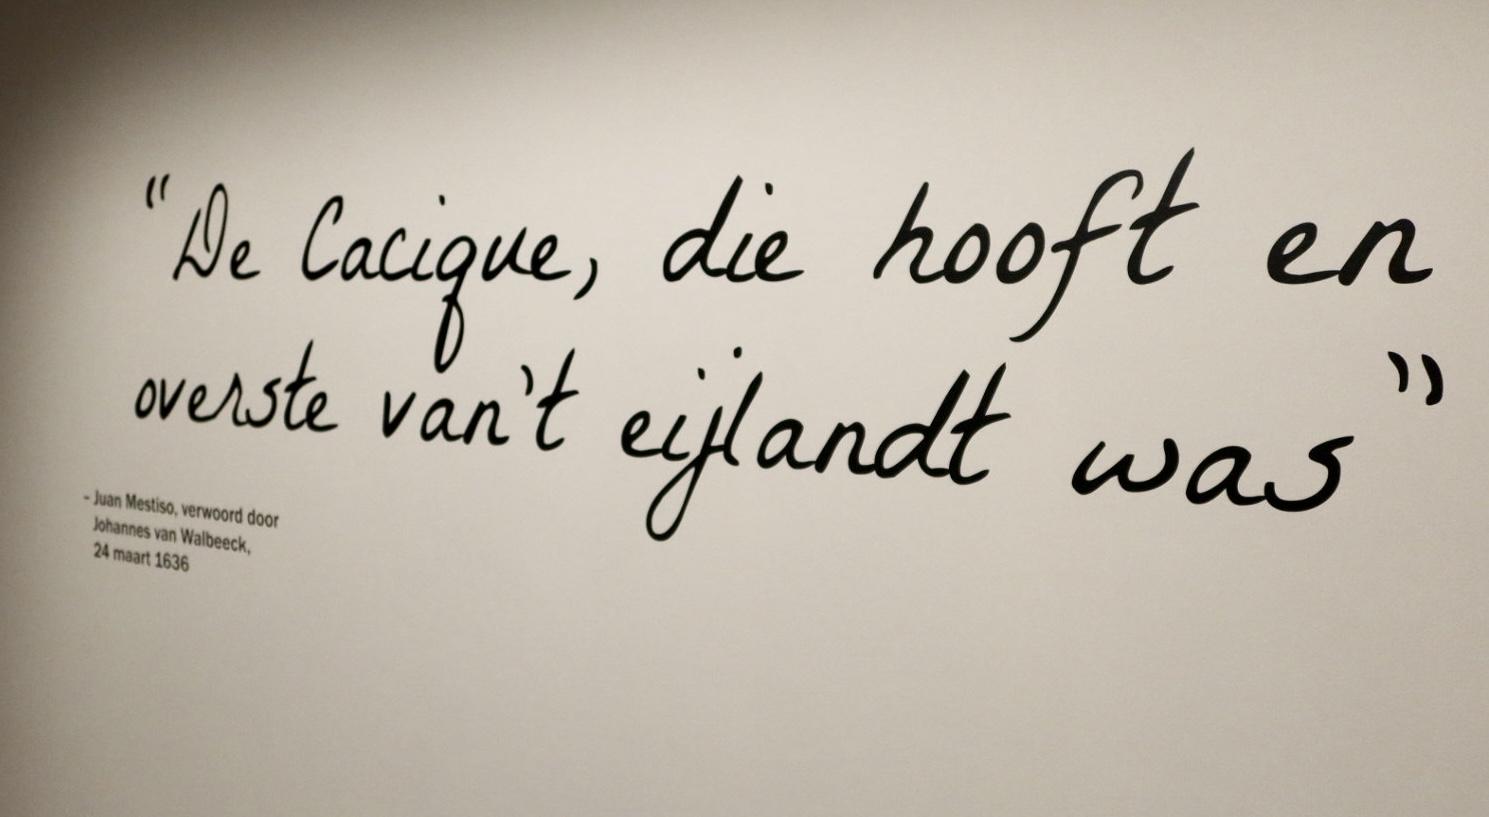 “De Cacique, die hooft en
overste van't eijlandt was”
- Juan Mestiso, verwoord door
Johannes van Walbeeck,
24 maart 1636